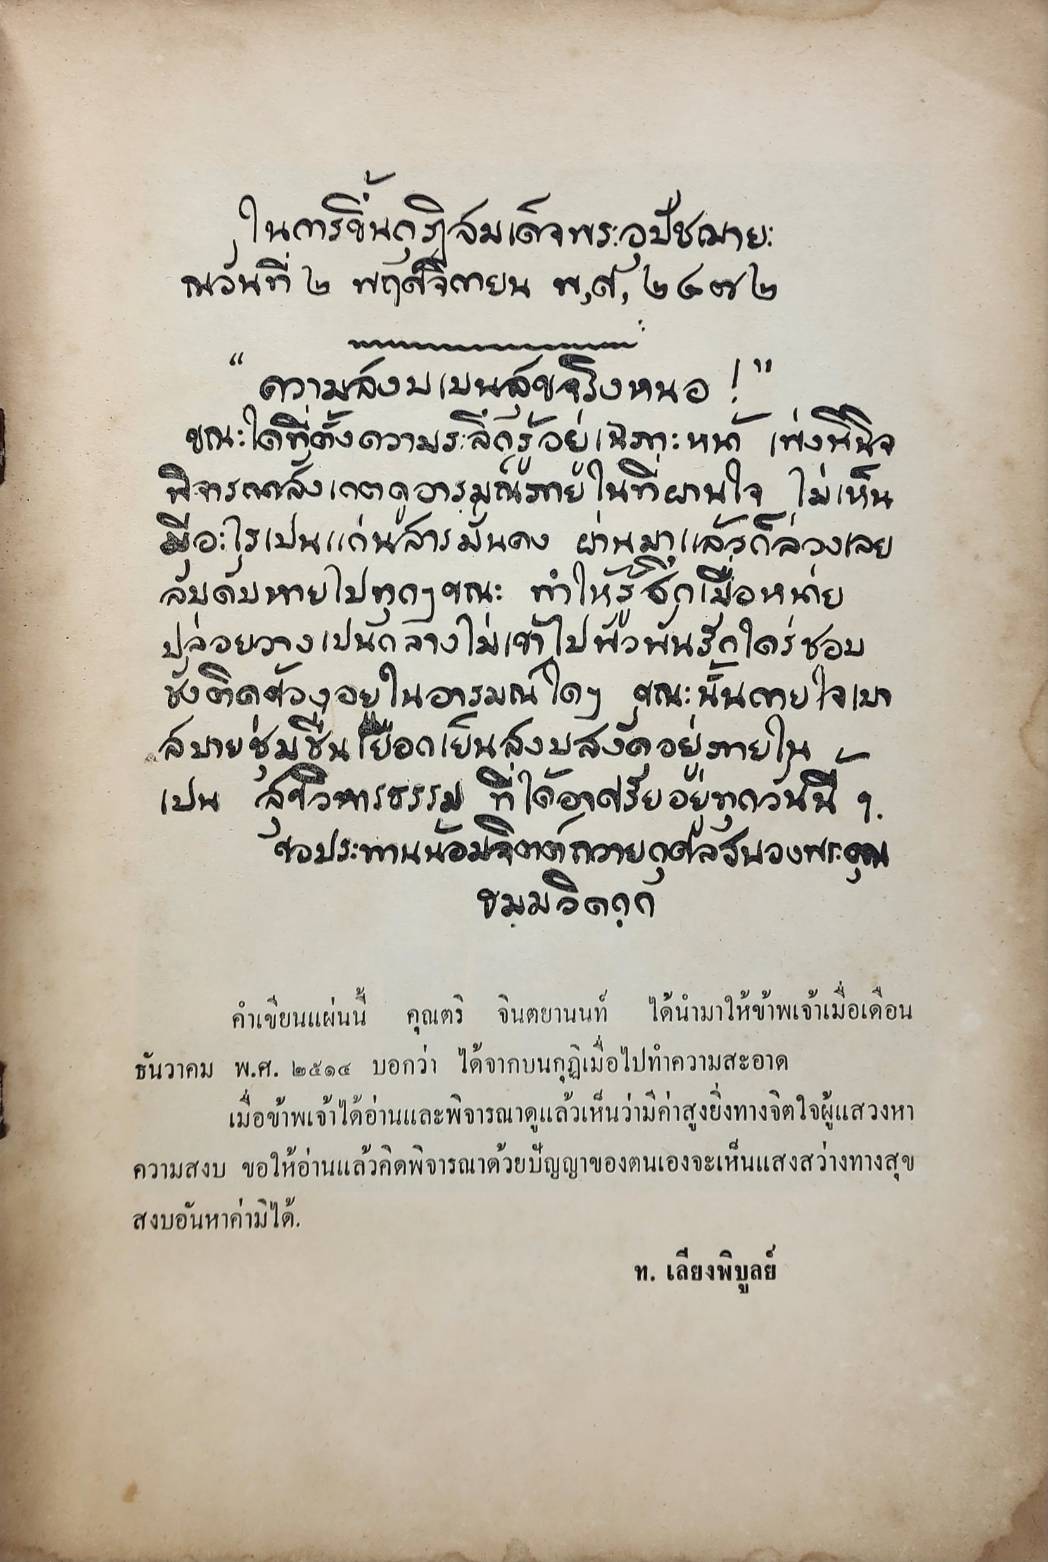 ในการขึ้นกุฏิสมเด็จพระอุปัชฌายะ
ณวันที่ ๒ พฤศจิกายน พ,ศ, ๒๔๗๒
“ ความสงบเปนสุขจริงหนอ ! ”
ขณะใดที่ตั้งความระลึกรู้อยู่เฉพาะหน้า เพ่งพินิจ
พิจารณาสังเกตดูอารมณ์ภายในที่ผานใจ ไม่เห็น
มีอะไรเปนแก่นสารมั่นคง ผ่านมาแล้วก็ล่วงเลย
ลับดับหายไปทุกๆขณะ ทำให้รู้สึกเบื่อหน่าย
ปล่อยวางเปนกลางไม่เข้าไปพัวพันรักใคร่ชอบ
ชังติดข้องอยู่ในอารมณ์ใดๆ ขณะนั้นกายใจเบา
สบายชุ่มชื่นเยือกเย็นสงบสงัดอยู่ภายใน
เปน สุขวิหารธรรม ที่ได้อาศรัยอยู่ทุกวันนี้ ฯ.
ขอประทานน้อมจิตต์ถวายกุศลสนองพระคุณ
ธมฺมวิตกฺก
คำเขียนแผ่นนี้ คุณตริ จินตยานนท์ ได้นำมาให้ข้าพเจ้าเมื่อเดือน
ธันวาคม พ.ศ. ๒๕๑๔ บอกว่า ได้จากบนกุฏิเมื่อไปทำความสะอาด
เมื่อข้าพเจ้าได้อ่านและพิจารณาดูแล้วเห็นว่ามีค่าสูงยิ่งทางจิตใจผู้แสวงหา
ความสงบ ขอให้อ่านแล้วคิดพิจารณาด้วยปัญญาของตนเองจะเห็นแสงสว่างทางสุข
สงบอันหาค่ามิได้.
ท. เลียงพิบูลย์